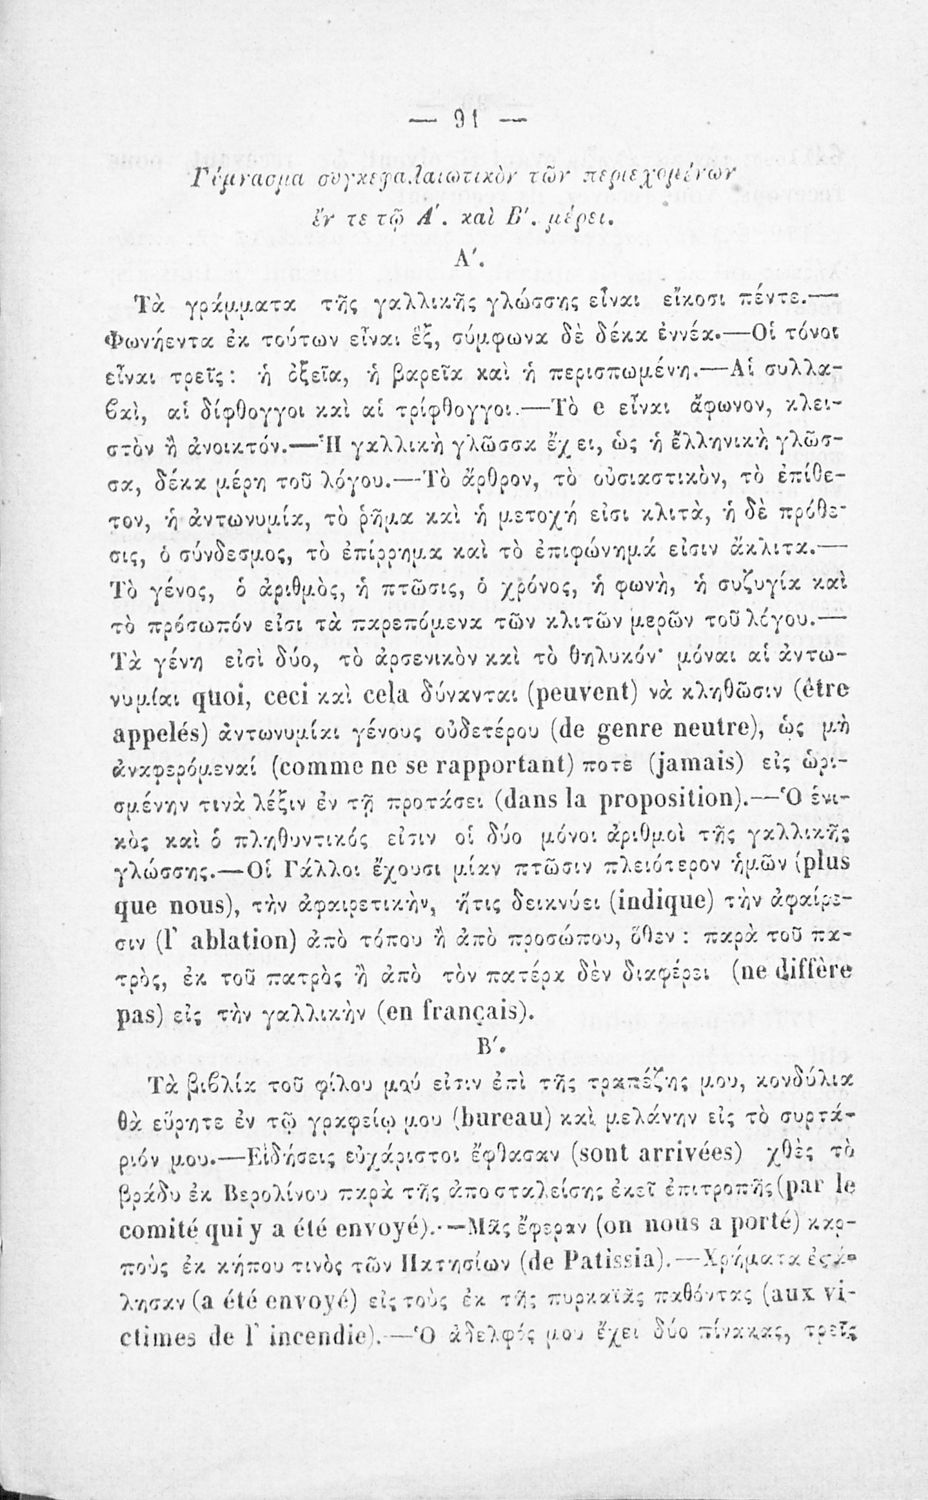 — 91 —
Γύμνασμα συγκεφαλαιωτικὸν τῶν περιεχομένων
ἔν τε τῷ Α΄. καὶ Β΄. μέρει.
Α΄.
Τὰ γράμματα τῆς γαλλικῆς γλώσσης εἶναι εἴκοσι πέντε.—
Φωνήεντα ἐκ τούτων εἶναι ἕξ, σύμφωνα δὲ δέκα ἐννέα.—Οἱ τόνοι
εἶναι τρεῖς: ἡ ὀξεῖα, ἡ βαρεῖα καὶ ἡ περισπωμένη.—Αἱ συλλα-
βαὶ, αἱ δίφθογγοι καὶ αἱ τρίφθογγοι.—Τὸ e εἶναι ἄφωνον, κλει-
στὸν ἢ ἀνοικτόν.—Ἡ γαλλικὴ γλῶσσα ἔχει, ὡς ἡ ἑλληνικὴ γλῶσ-
σα, δέκα μέρη τοῦ λόγου.—Τὸ ἄρθρον, τὸ οὐσιαστικὸν, τὸ ἐπίθε-
τον, ἡ ἀντωνυμία, τὸ ῥῆμα καὶ ἡ μετοχή εἰσι κλιτὰ, ἡ δὲ πρόθε-
σις, ὁ σύνδεσμος, τὸ ἐπίρρημα καὶ τὸ ἐπιφώνημά εἰσιν ἄκλιτα.—
Τὸ γένος, ὁ ἀριθμὸς, ἡ πτῶσις, ὁ χρόνος, ἡ φωνὴ, ἡ συζυγία καὶ
τὸ πρόσωπόν εἰσι τὰ παρεπόμενα τῶν κλιτῶν μερῶν τοῦ λόγου.—
Τὰ γένη εἰσὶ δύο, τὸ ἀρσενικὸν καὶ τὸ θηλυκόν· μόναι αἱ ἀντω-
νυμίαι quoi, ceci καὶ cela δύνανται (peuvent) νὰ κληθῶσιν (être
appelés) ἀντωνυμίαι γένους οὐδετέρου (de genre neutre), ὡς μὴ
ἀναφερόμεναί (comme ne se rapportant) ποτε (jamais) εἰς ὡρι-
σμένην τινὰ λέξιν ἐν τῇ προτάσει (dans la proposition).—Ὁ ἑνι-
κὸς καὶ ὁ πληθυντικός εἰσιν οἱ δύο μόνοι ἀριθμοὶ τῆς γαλλικῆς
γλώσσης.—Οἱ Γάλλοι ἔχουσι μίαν πτῶσιν πλειότερον ἡμῶν (plus
que nous), τὴν ἀφαιρετικὴν, ἥτις δεικνύει (indique) τὴν ἀφαίρε-
σιν (l' ablation) ἀπὸ τόπου ἢ ἀπὸ προσώπου, ὅθεν: παρὰ τοῦ πα-
τρὸς, ἐκ τοῦ πατρὸς ἢ ἀπὸ τὸν πατέρα δὲν διαφέρει (ne diffère
pas) εἰς τὴν γαλλικὴν (en français).
Β΄.
Τὰ βιβλία τοῦ φίλου μού εἰσιν ἐπὶ τῆς τραπέζης μου, κονδύλια
θὰ εὕρητε ἐν τῷ γραφείῳ μου (bureau) καὶ μελάνην εἰς τὸ συρτά-
ριόν μου.—Εἰδήσεις εὐχάριστοι ἔφθασαν (sont arrivées) χθὲς τὸ
βράδυ ἐκ Βερολίνου παρὰ τῆς ἀποσταλείσης ἐκεῖ ἐπιτροπῆς (par le
comité qui y a été envoyé).—Μᾶς ἔφεραν (on nous a porté) καρ-
ποὺς ἐκ κήπου τινὸς τῶν Πατησίων (de Patissia).—Χρήματα ἐστά-
λησαν (a été envoyé) εἰς τοὺς ἐκ τῆς πυρκαϊᾶς παθόντας (aux vi-
ctimes de l' incendie).—Ὁ ἀδελφός μου ἔχει δύο πίνακας, τρεῖς